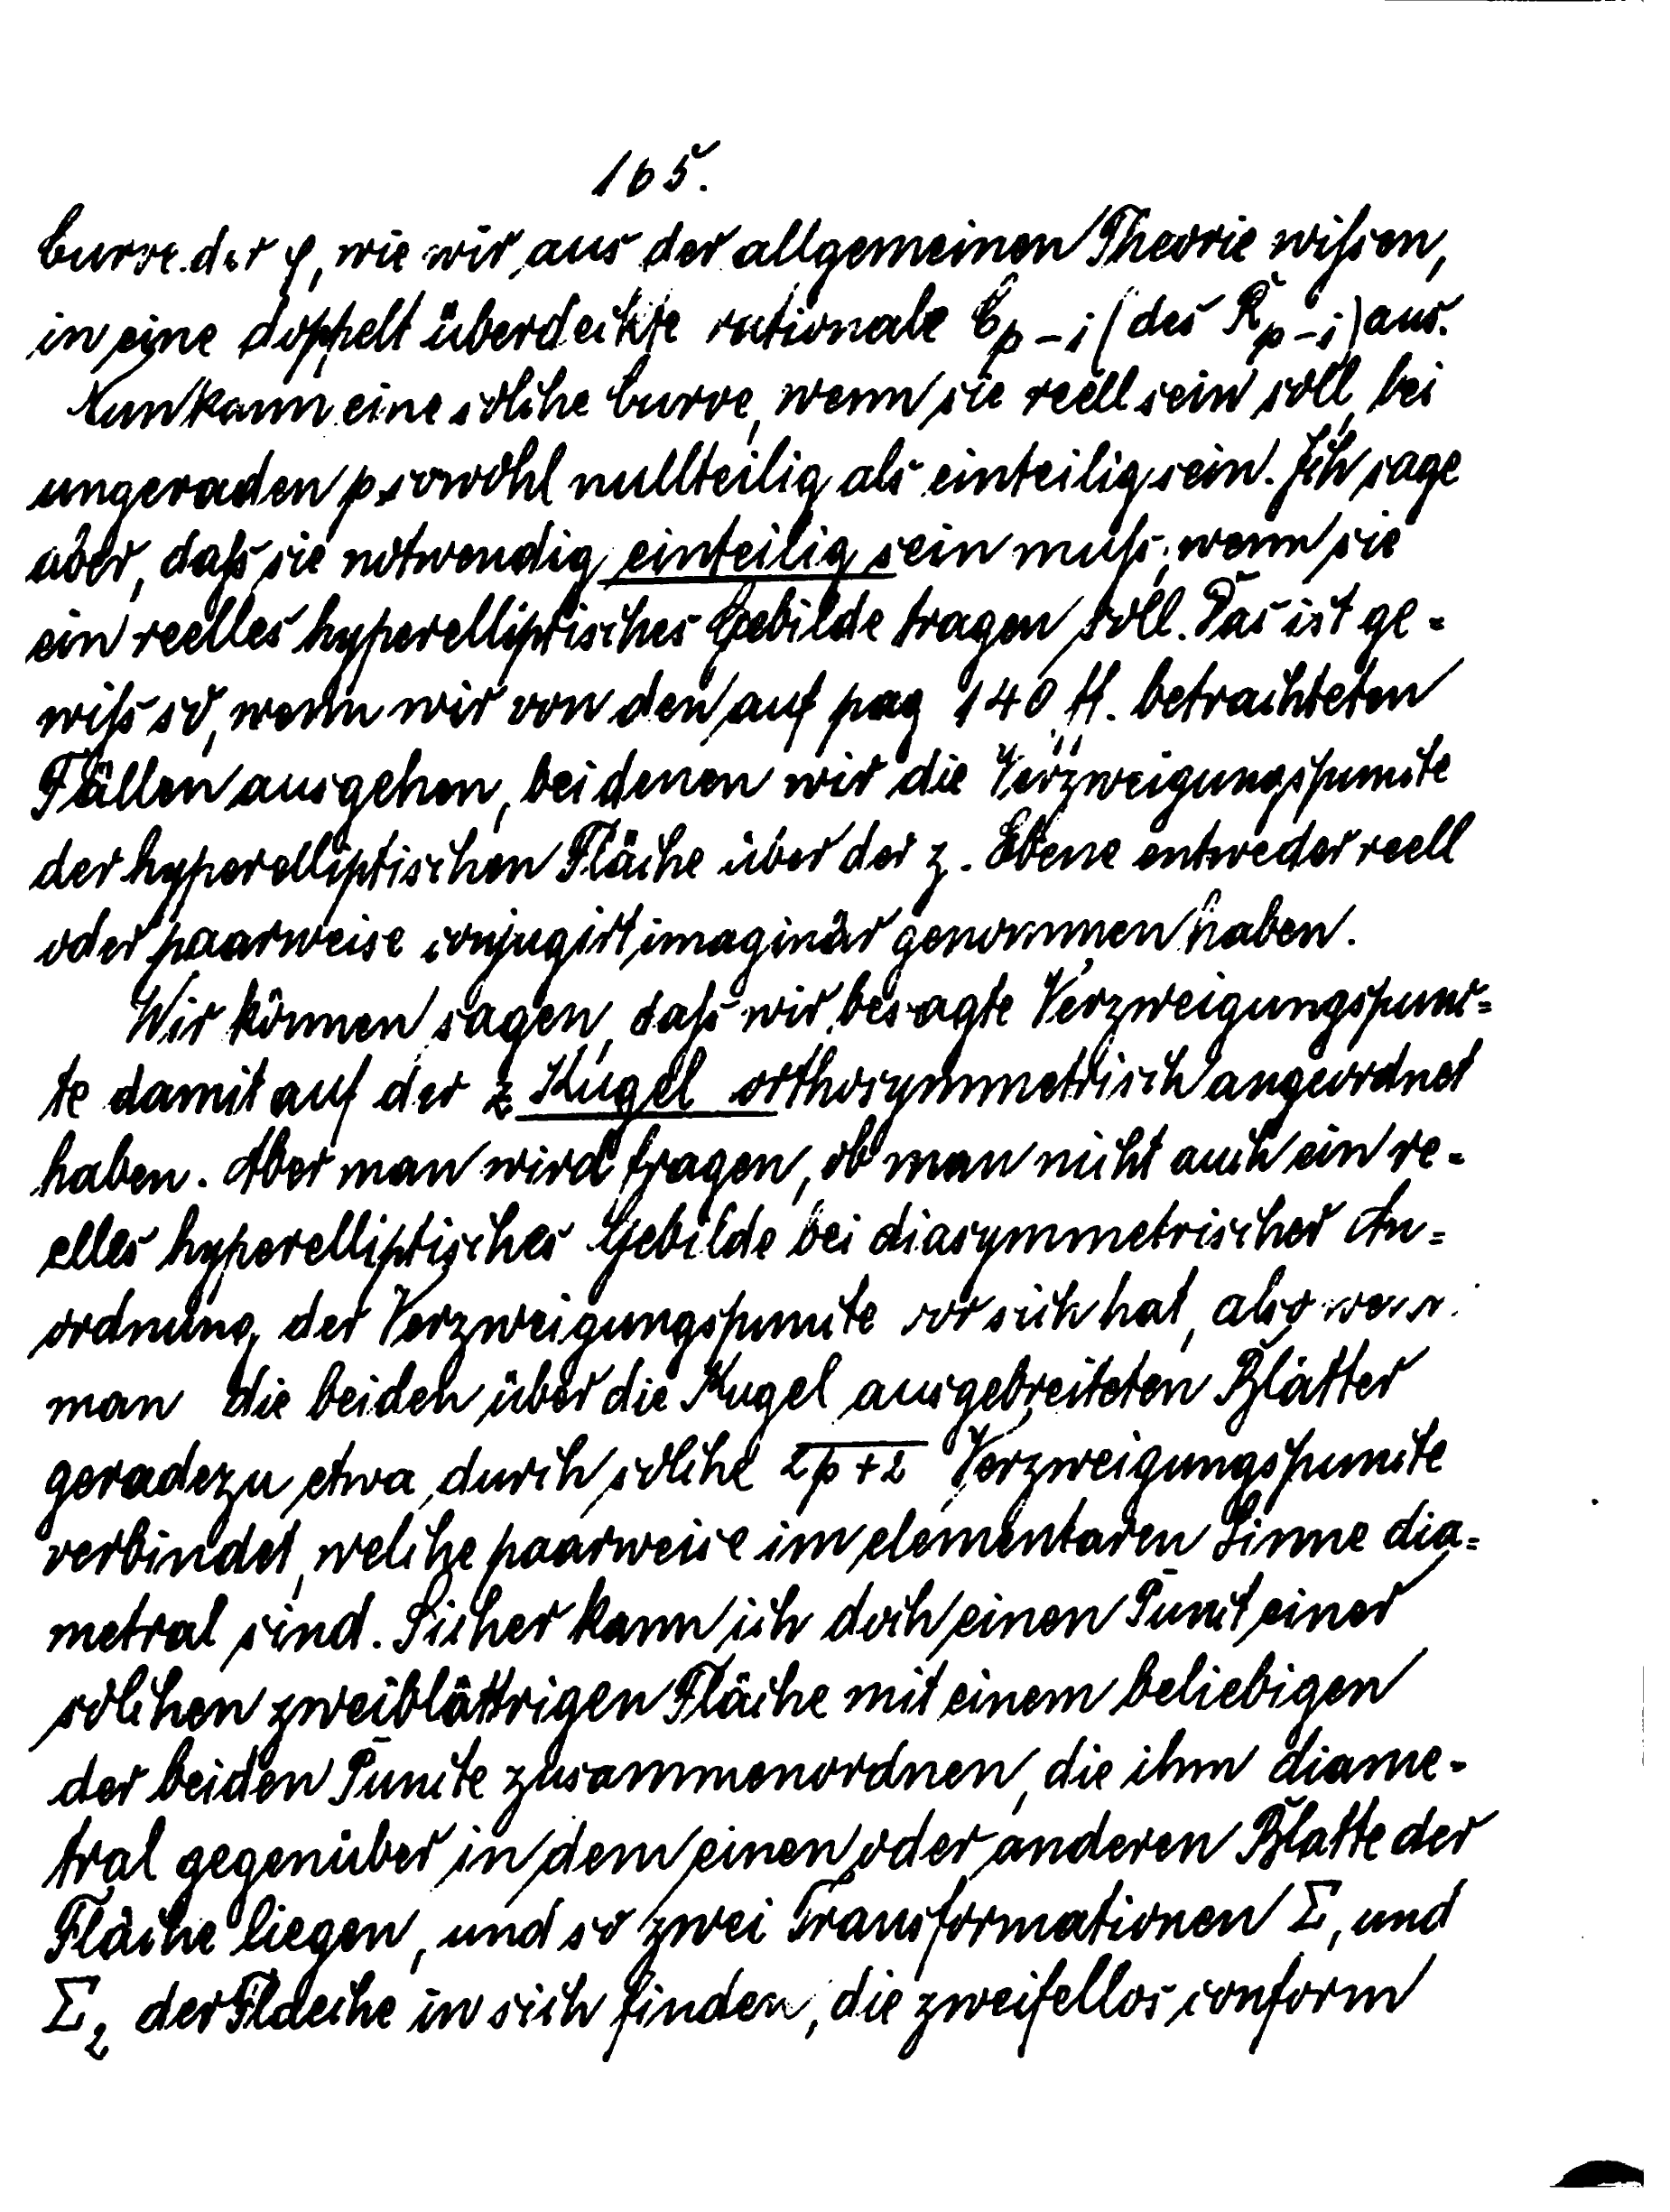 165.
Curve der φ, wie wir aus der allgemeinen Theorie wißen,
in eine doppelt überdeckte rationale C_{p-1} (des R_{p-1}) aus.
Nun kann eine solche Curve, wenn sie reell sein soll, bei
ungeraden p sowohl nullteilig als einteilig sein. Ich sage
aber, daß sie notwendig einteilig sein muß, wenn sie
ein reelles hyperelliptisches Gebilde tragen soll. Das ist ge-
wiß so, wenn wir von den auf pag 140 ff. betrachteten
Fällen ausgehen, bei denen wir die Verzweigungspuncte
der hyperelliptischen Fläche über der z-Ebene entweder reell
oder paarweise conjugirt imaginär genommen haben.
Wir können sagen, daß wir besagte Verzweigungspunc-
te damit auf der z Kugel orthosymmetrisch angeordnet
haben. Aber man wird fragen, ob man nicht auch ein re-
elles hyperelliptisches Gebilde bei diasymmetrischer An-
ordnung der Verzweigungspuncte vor sich hat, also wenn
man die beiden über die Kugel ausgebreiteten Blätter
geradezu etwa durch solche 2p+2 Verzweigungspuncte
verbindet, welche paarweise im elementaren Sinne dia-
metral sind. Sicher kann ich doch einen Punct einer
solchen zweiblättrigen Fläche mit einem beliebigen
der beiden Puncte zusammenordnen, die ihm diame-
tral gegenüber in dem einen oder anderen Blatte der
Fläche liegen, und so zwei Transformationen Σ₁ und
Σ₂ der Flaeche in sich finden, die zweifellos conform